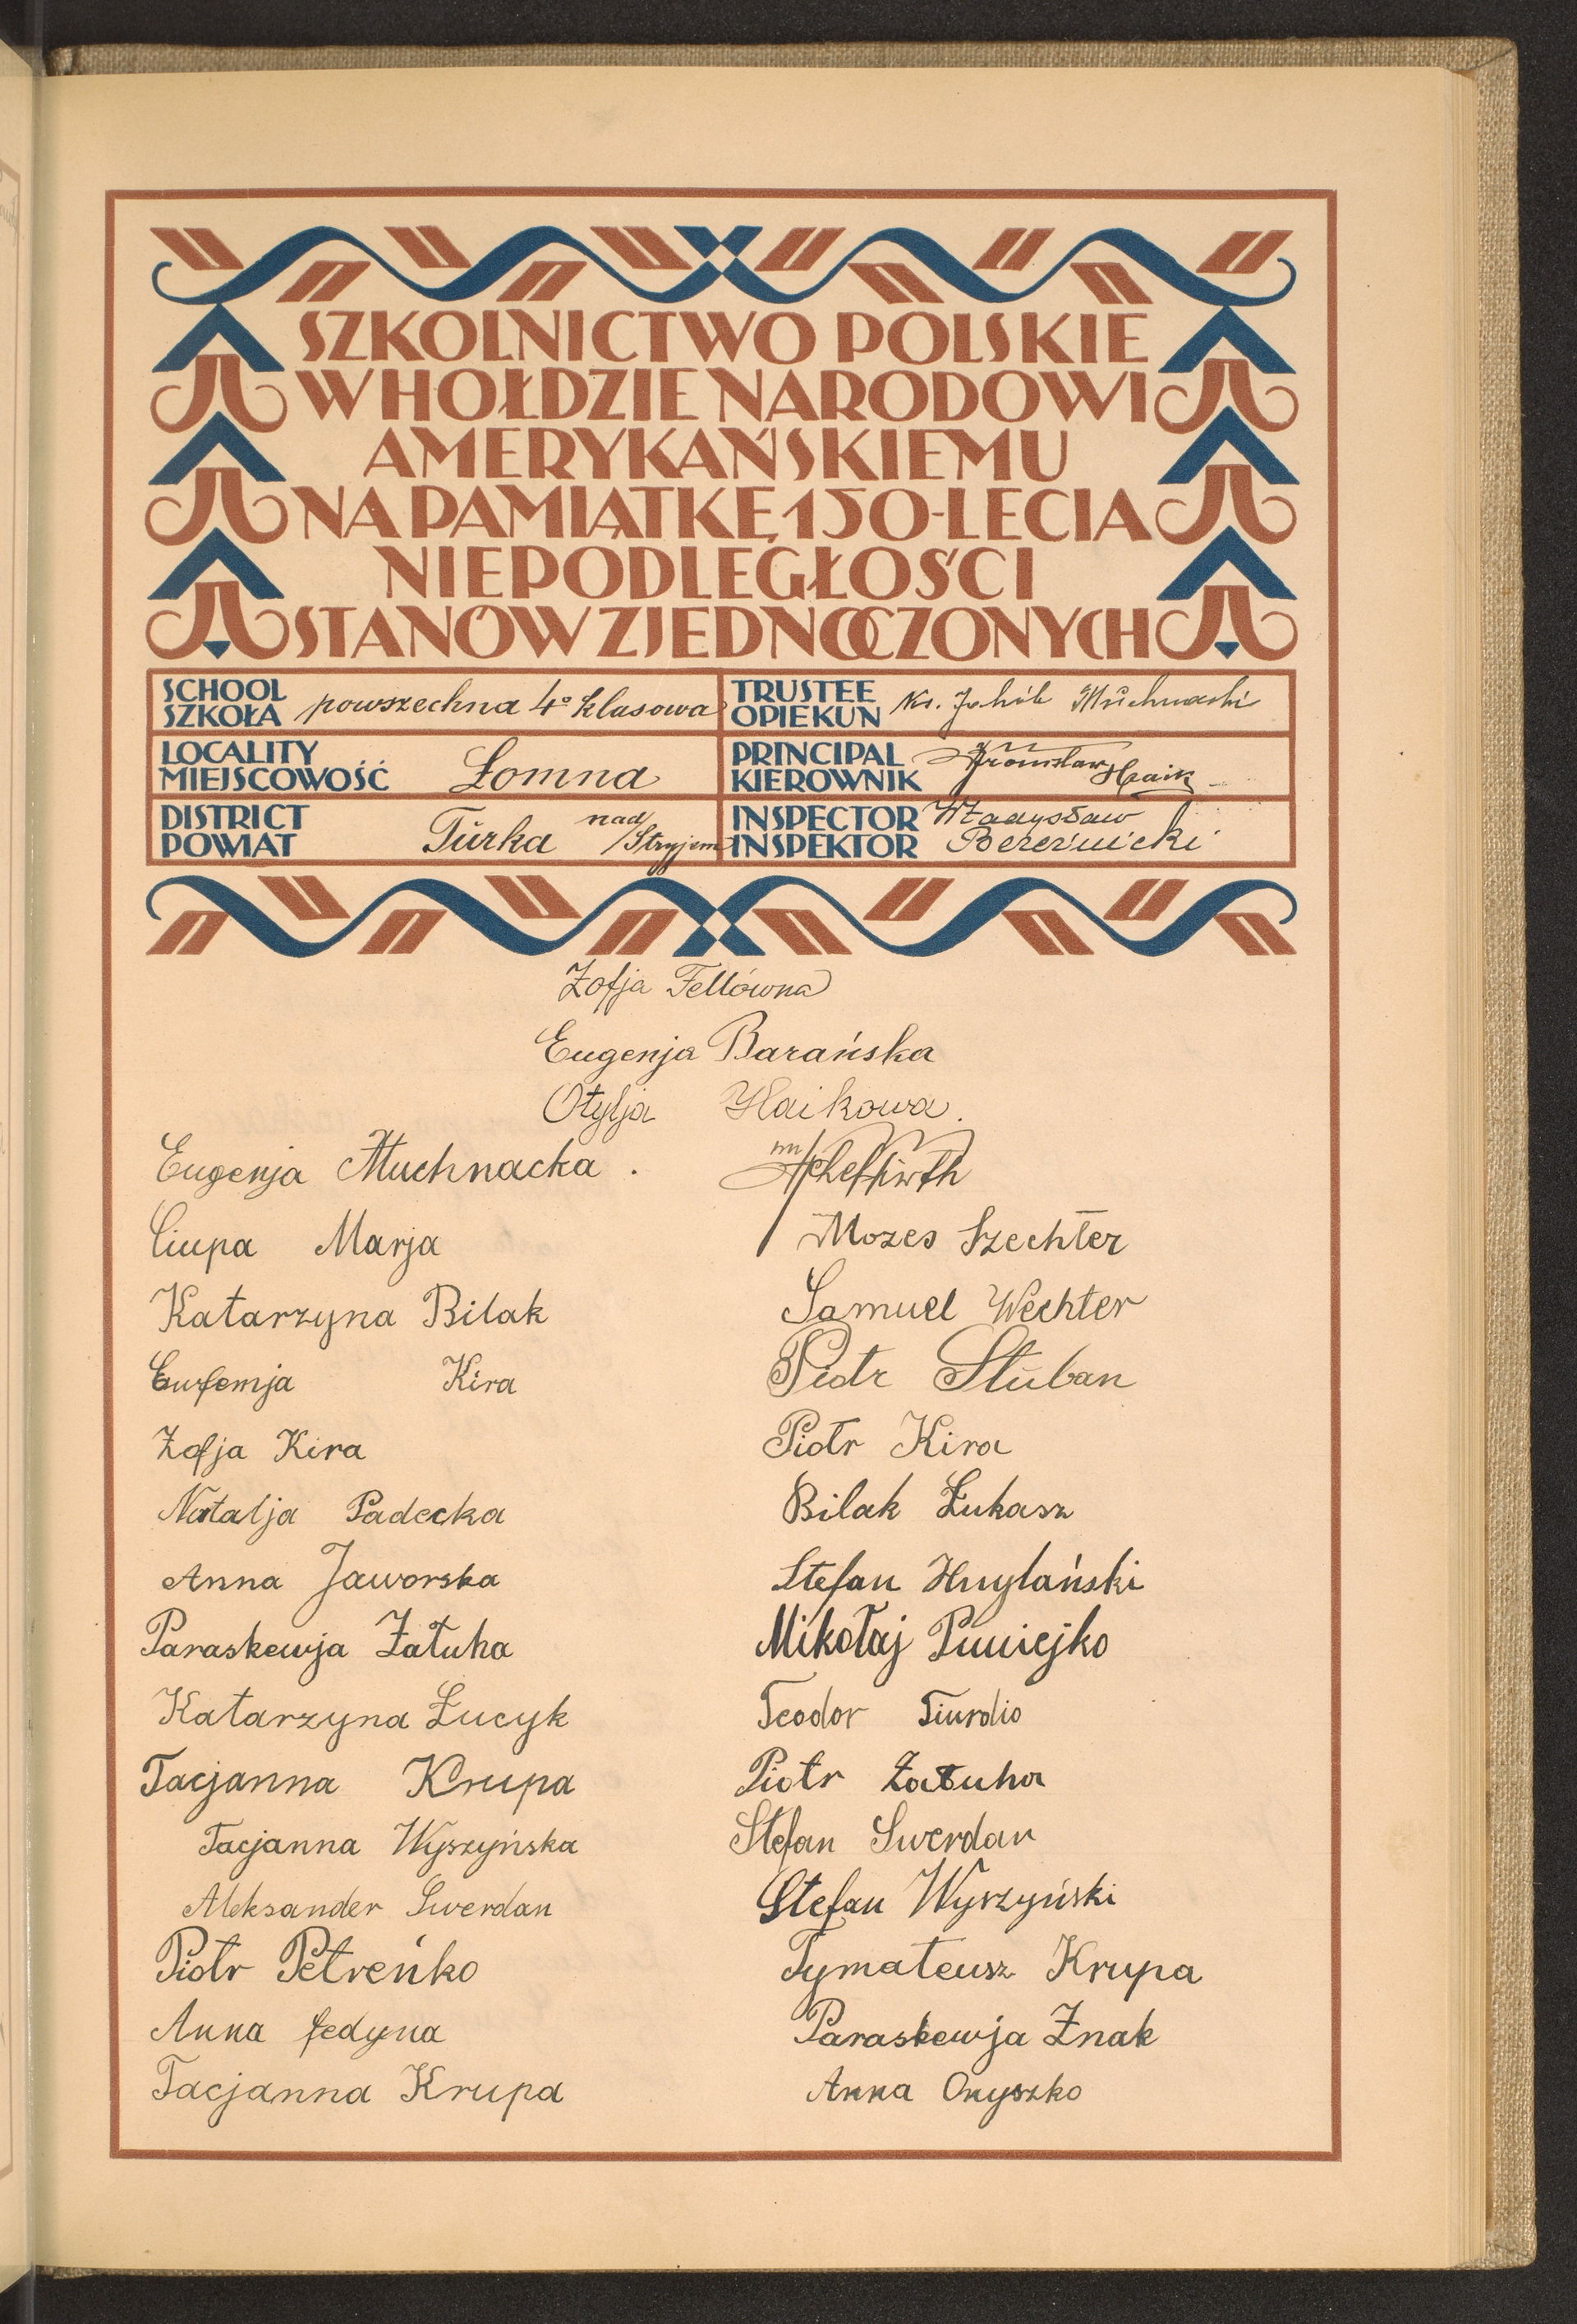 SZKOLNICTWO POLSKIE
W HOŁDZIE NARODOWI
AMERYKAŃSKIEMU
NA PAMIĄTKĘ 150-LECIA
NIEPODLEGŁOŚCI
STANÓW ZJEDNOCZONYCH
SCHOOL
SZKOŁA powszechna 4º klasowa
TRUSTEE
OPIEKUN Ks. Jakób
LOCALITY
MIEJSCOWOŚĆ Łomna
PRINCIPAL
KIEROWNIK Bronisław Haik
DISTRICT
POWIAT Turka nad/Stryjem
INSPECTOR Władysław
INSPEKTOR Bereźnicki
Zofja Fellówna
Eugenja Barańska
Otylja Haikowa.
Eugenja Muchnacka.
Ciupa Marja
Mozes Szechter
Katarzyna Bilak
Samuel Wechter
Eufemja Kira
Piotr Stuban
Zofja Kira
Piotr Kira
Natalja Padecka
Bilak Łukasz
Anna Jaworska
Stefan Hnylański
Paraskewja Załuha
Mikołaj
Katarzyna Łucyk
Teodor
Tacjanna Krupa
Piotr Załuha
Tacjanna Wyszyńska
Stefan Swerdan
Aleksander Swerdan
Stefan Wyszyński
Piotr Petreńko
Tymateusz Krupa
Anna Fedyna
Paraskewja Znak
Tacjanna Krupa
Anna Onyszko